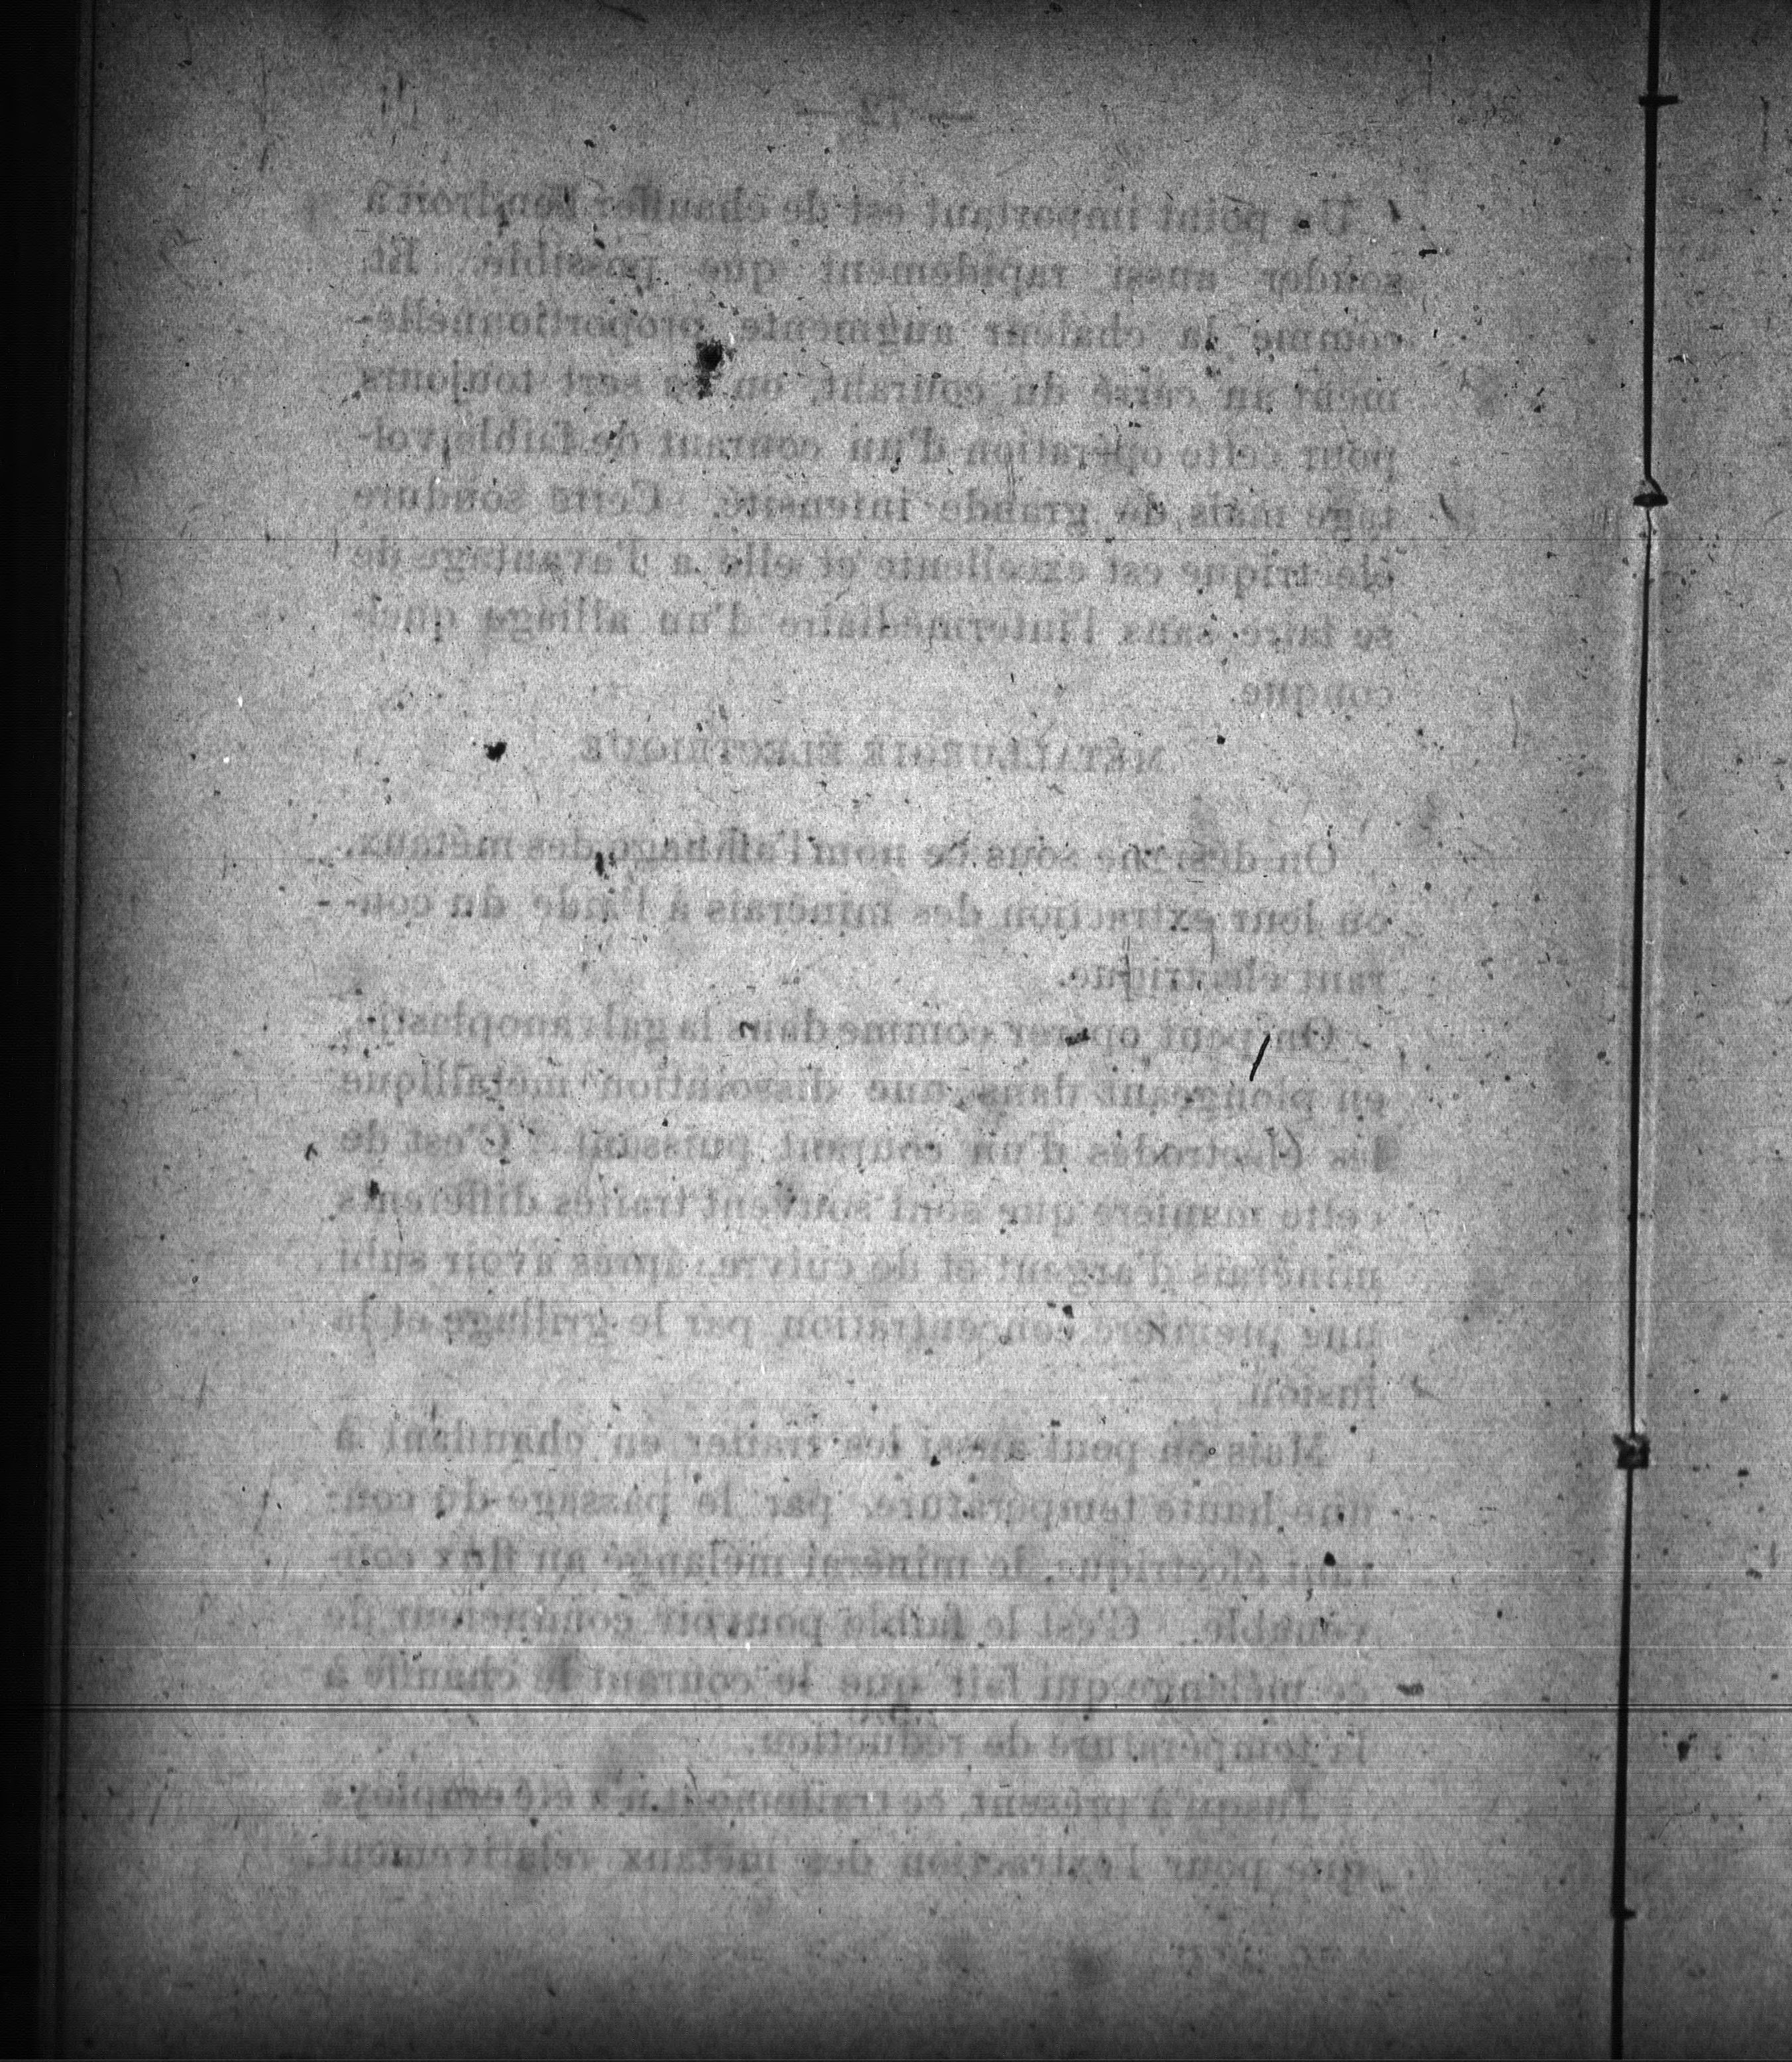 — 72 —
Un point important est de chauffer l'endroit à
souder aussi rapidement que possible. Et
comme la chaleur augmente proportionnelle-
ment au carré du courant, on se sert toujours
pour cette opération d'un courant de faible vol-
tage mais de grande intensité. Cette soudure
électrique est excellente et elle a l'avantage de
se faire sans l'intermédiaire d'un alliage quel-
conque
MÉTALLURGIE ÉLECTRIQUE
On désigne sous ce nom l'affinage des métaux,
ou leur extraction des minérais à l'aide du cou-
rant électrique.
On peut opérer comme dans la galvanoplastie,
en plongeant dans une dissolution métallique
les électrodes d'un courant puissant. C'est de
cette manière que sont souvent traités différents
minérais d'argent et de cuivre, après avoir subi
une première concentration par le grillage et la
fusion
Mais on peut aussi les traiter en chauffant à
une haute température, par le passage du cou-
rant électrique, le minérai mélangé au flux con-
venable. C'est le faible pouvoir conducteur de
ce mélange qui fait que le courant le chauffe à
la température de réduction.
Jusqu'à présent, ce traitement n'a été employé
que pour l'extraction des métaux relativement